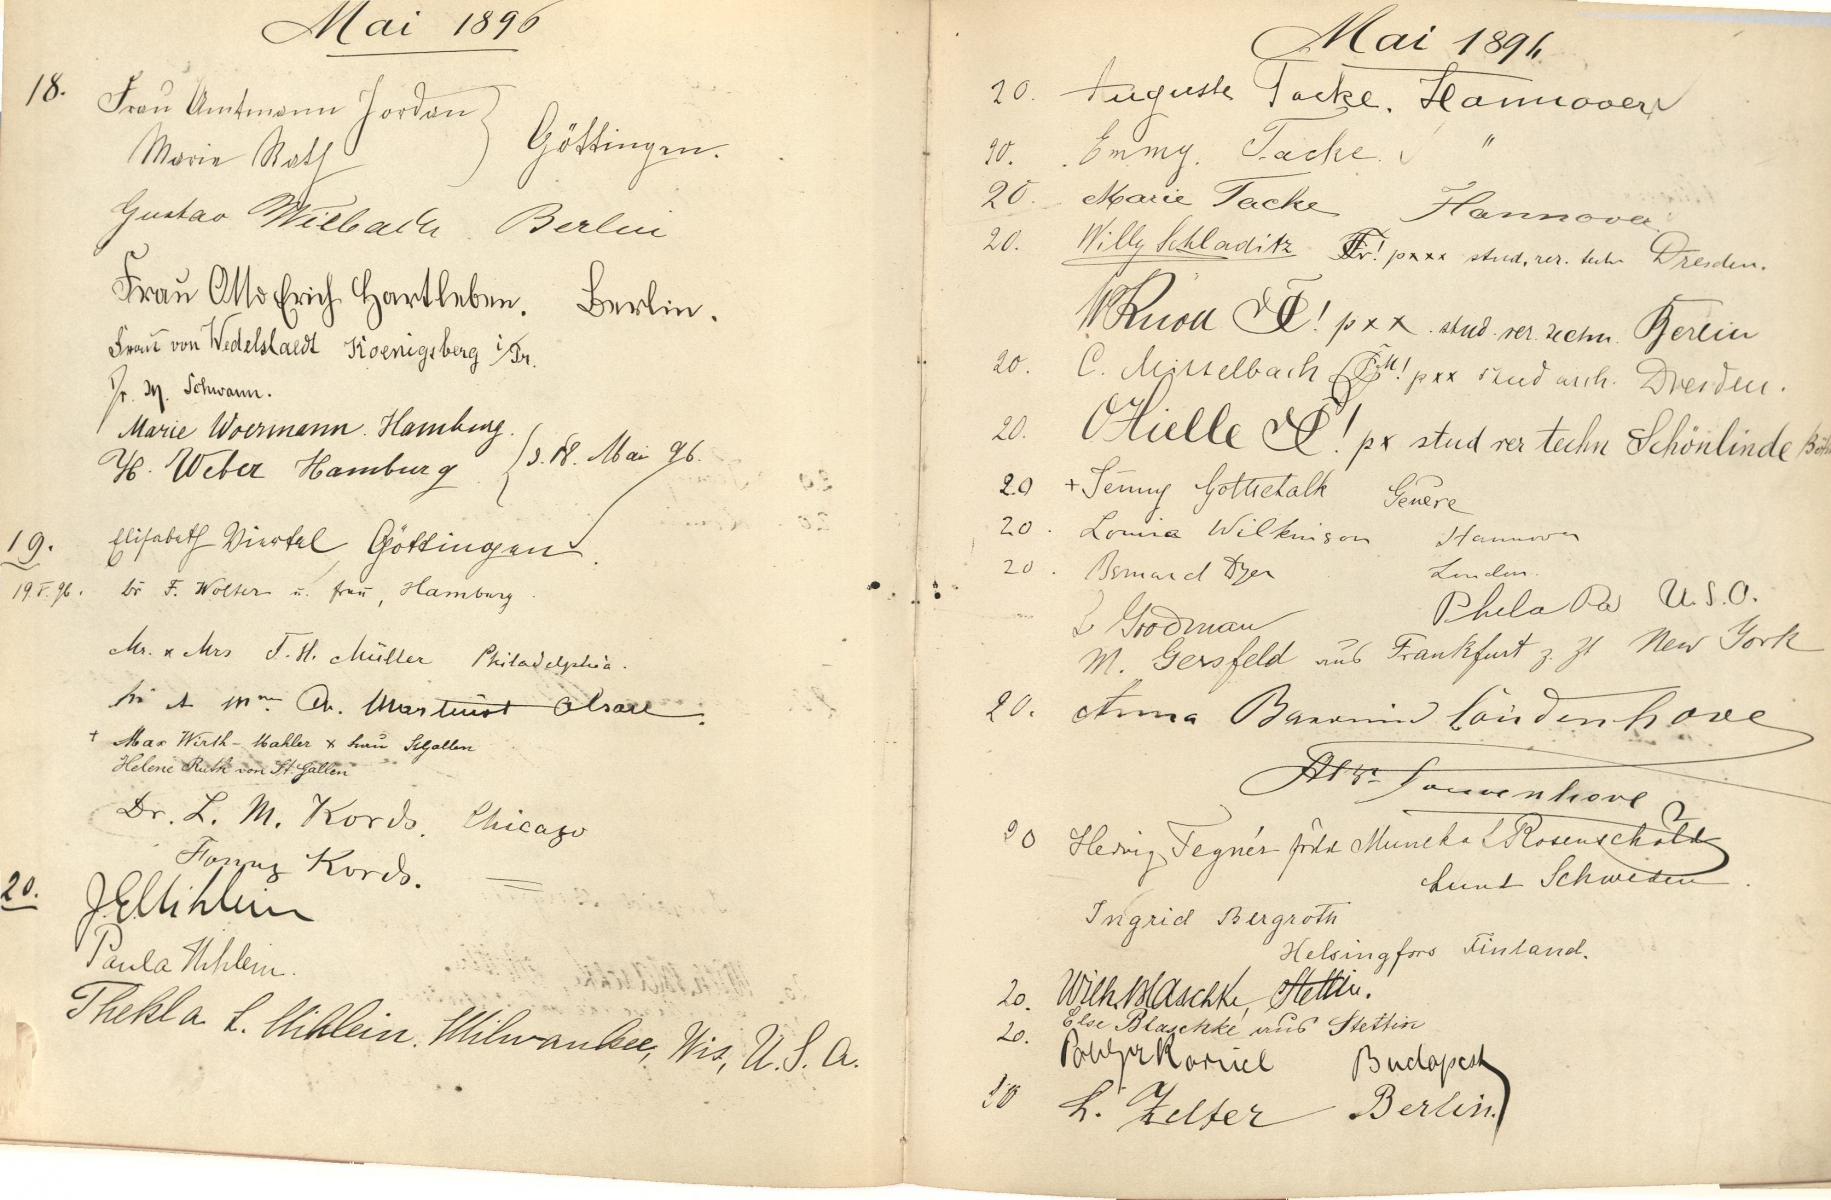 Mai 1896
18. Frau Amtmann Jordan
Marie Rath } Göttingen.
Gustav Wielback Berlin
Frau Otto Erich Hartleben. Berlin.
Frau von Wedelstaedt Koenigsberg i/Pr.
Dr. M. Schwann.
Marie Woermann. Hamburg.
H. Weber Hamburg } d. 18. Mai 96.
19. Elisabeth Viertel Göttingen.
19.V.96. Dr F. Wolter u. Frau, Hamburg.
Mr. & Mrs F. H. Müller Philadelphia.
Mr & Mme Ch.
+ Max Wirth-Mahler & Frau St Gallen
Helene Ruth von St. Gallen
Dr. L. M. Kords. Chicago
Fanny Kords.
20. J. E. Uihlein
Paula Uihlein.
Thekla L. Uihlein. Milwaukee, Wis, U. S. A.
Mai 1896
20. Auguste Tacke. Hannover
20. Emmy. Tacke. "
20. Marie Tacke Hannover
20. Willy Schladitz ! pxxx stud. rer. techn Dresden.
W Knoll ! pxx. stud. rer. techn. Berlin
20. C. Misselbach ! pxx stud arch. Dresden.
20. O Hielle ! px stud rer techn Schönlinde
20 + Jenny Gottschalk Genève
20. Louisa Wilkinson Hannover
20. Bernard Dyer London.
L Goodman Phila Pa U.S.A.
M. Gersfeld aus Frankfurt z. Zt New York
20. Anna Baronin Coudenhove
Coudenhove
20 Hedvig Tegnér född Munck af Rosenschöld
Lund Schweden.
Ingrid Bergroth
Helsingfors Finland.
20. Wilh. Blaschke, Stettin.
20. Else Blaschke aus Stettin
Kornel Budapest
20 L. Zelter Berlin.